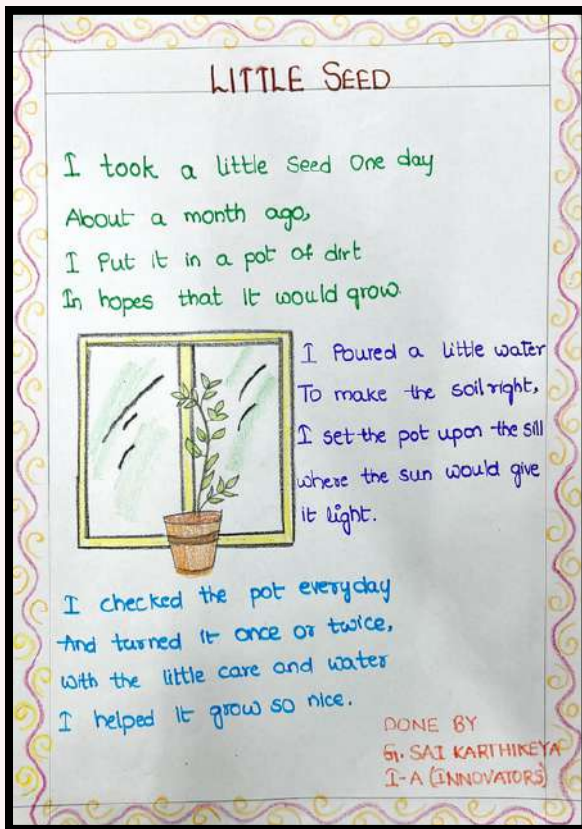 LITTLE SEED
I took a little seed One day
About a month ago,
I Put it in a pot of dirt
In hopes that it would grow.
I Poured a little water
To make the soil right,
I set the pot upon the sill
where the sun would give
it light.
I checked the pot everyday
And turned it once or twice,
with the little care and water
I helped it grow so nice.
DONE BY
G. SAI KARTHIKEYA
I-A (INNOVATORS)